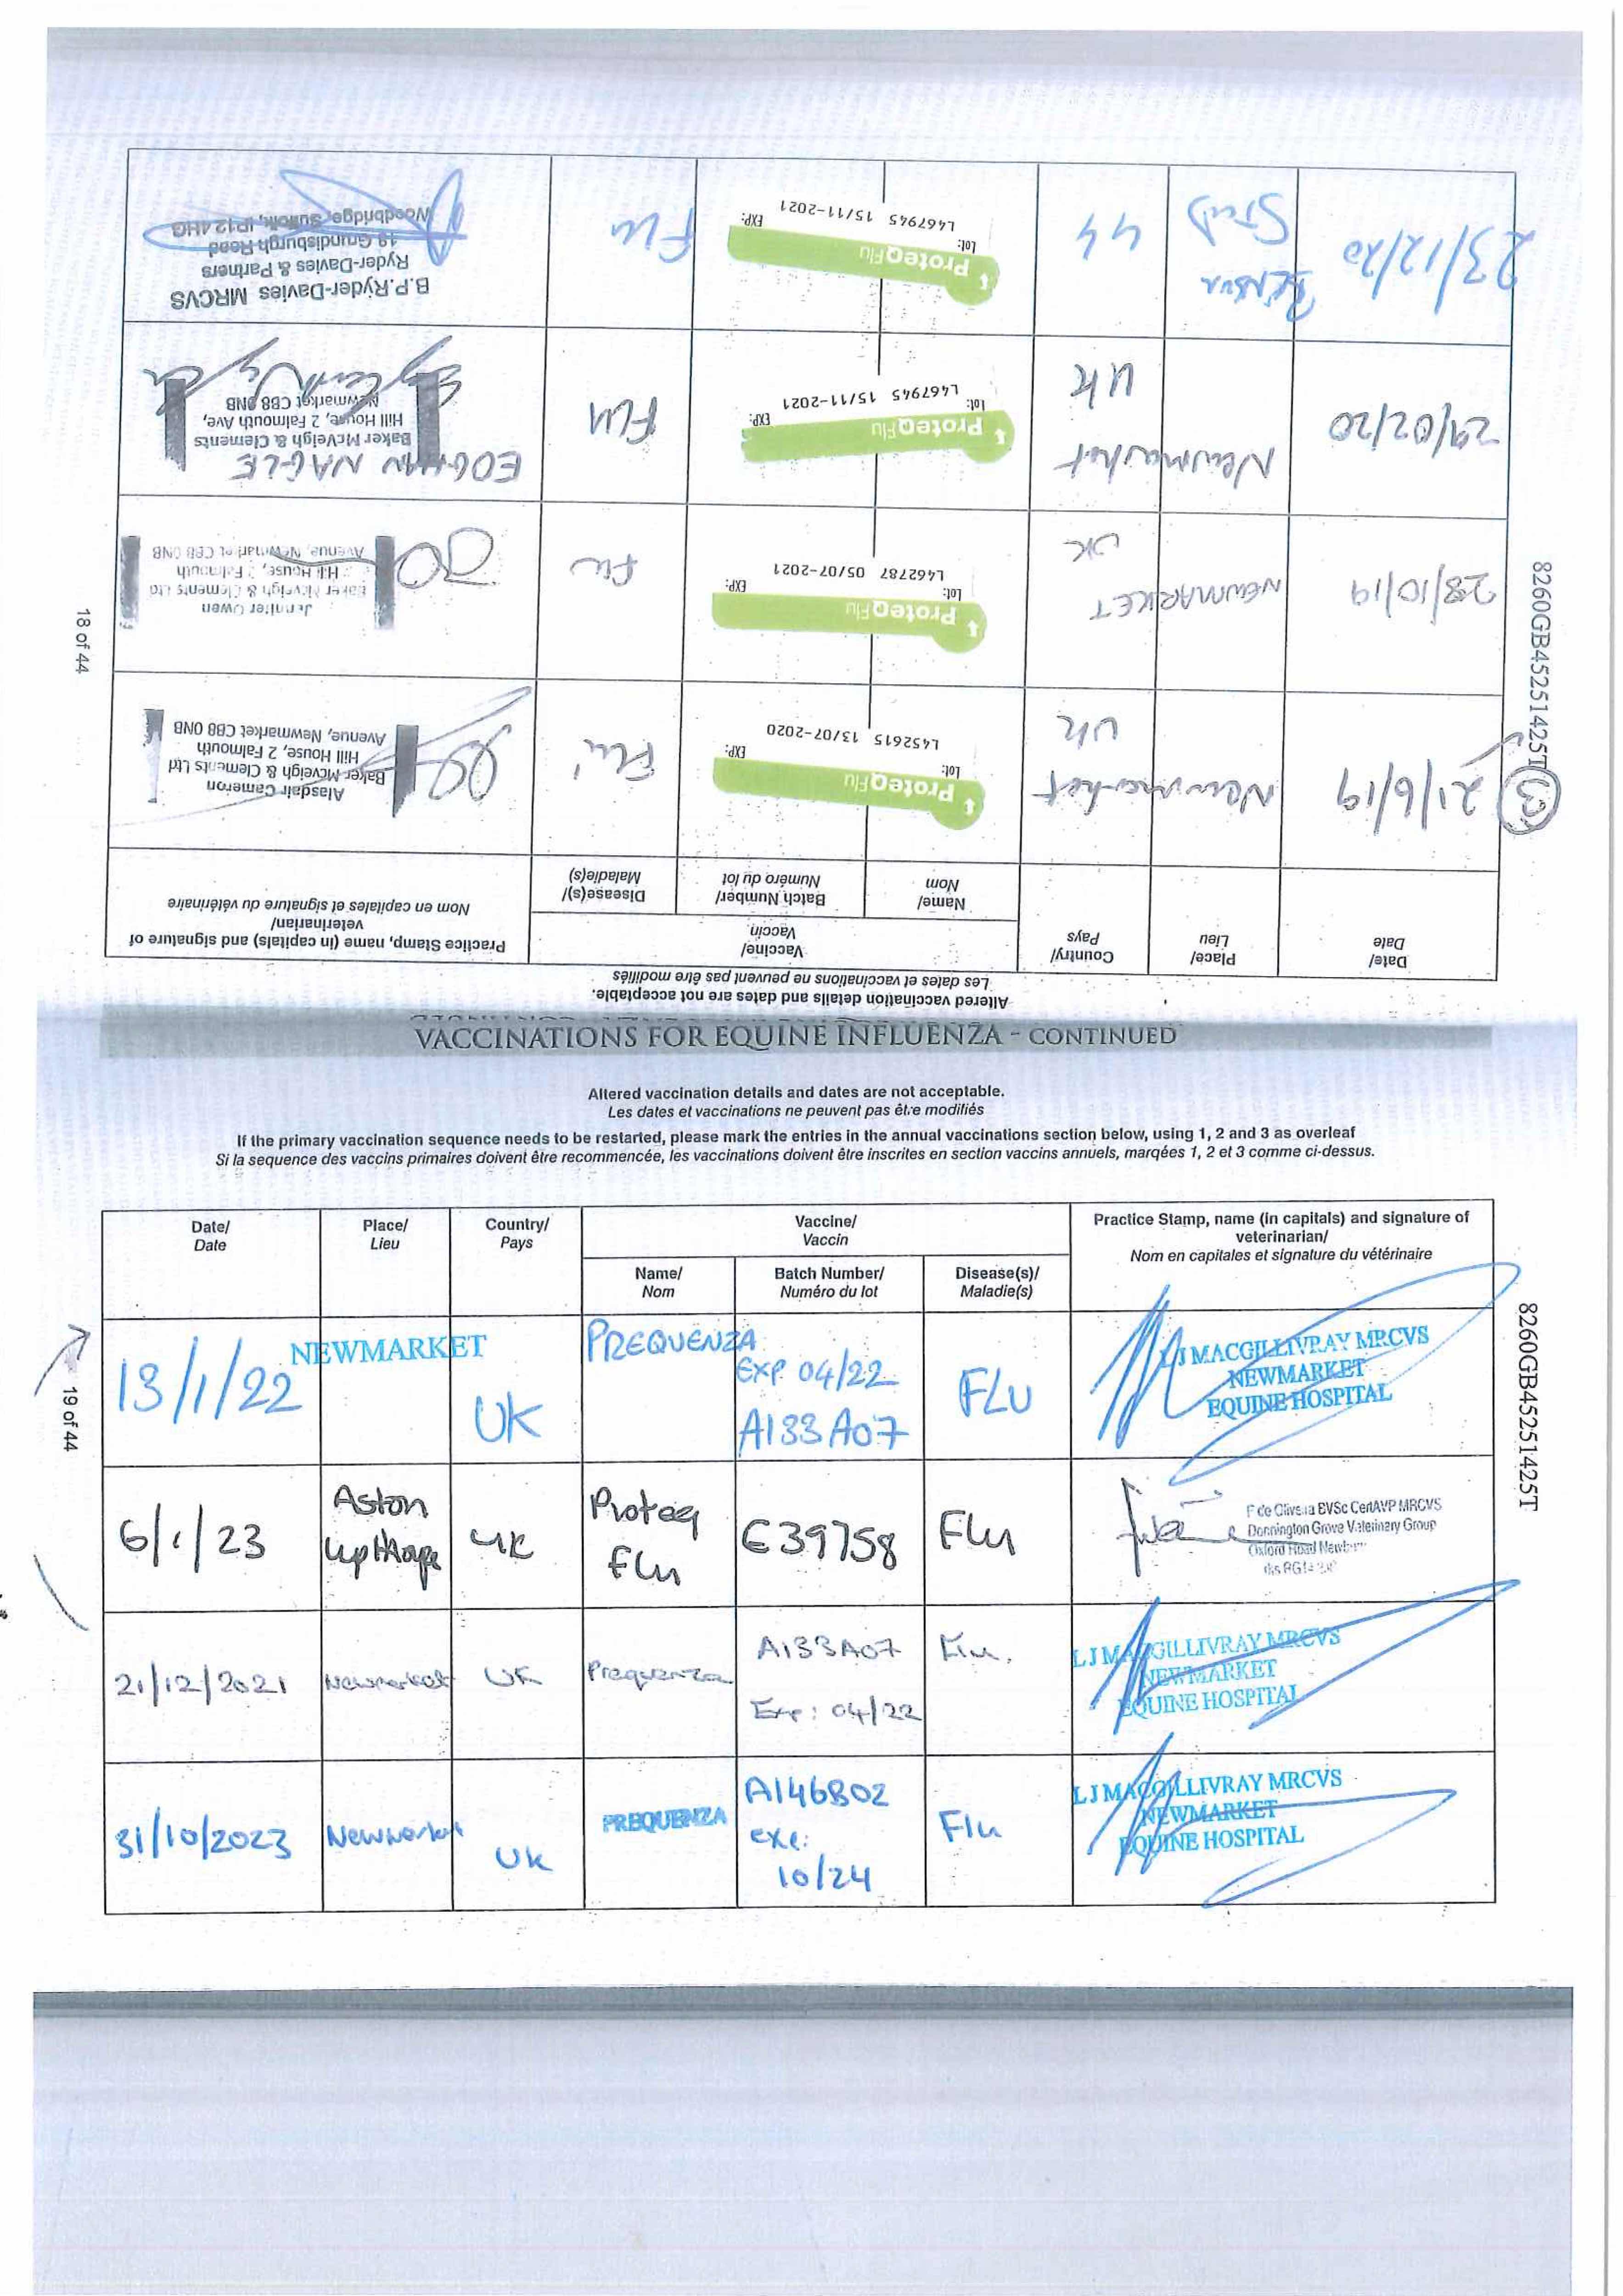 8260GB45251425T
18 of 44
Altered vaccination details and dates are not acceptable.
Les dates et vaccinations ne peuvent pas être modifiés
Date/
Date
Place/
Lieu
Country/
Pays
Vaccine/
Vaccin
Name/
Nom
Batch Number/
Numéro du lot
Disease(s)/
Maladie(s)
Practice Stamp, name (in capitals) and signature of
veterinarian/
Nom en capitales et signature du vétérinaire
3
21/6/19
Newmarket
UK
ProteqFlu
Lot:
EXP:
L452615 13/07-2020
Flu
Alasdair Cameron
Baker Mcveigh & Clements Ltd
Hill House, 2 Falmouth
Avenue, Newmarket CB8 0NB
28/10/19
NEWMARKET
UK
ProteqFlu
Lot:
EXP:
L462787 05/07-2021
Flu
Jennifer Owen
Baker Mcveigh & Clements Ltd
Hill House, 2 Falmouth
Avenue, Newmarket CB8 0NB
29/02/20
Newmarket
UK
ProteqFlu
Lot:
EXP:
L467945 15/11-2021
Flu
EOGHAN NAGLE
Baker McVeigh & Clements
Hill House, 2 Falmouth Ave,
Newmarket CB8 0NB
23/12/20
Stud
ProteqFlu
Lot:
EXP:
L467945 15/11-2021
Flu
B.P.Ryder-Davies MRCVS
Ryder-Davies & Partners
19 Grundisburgh Road
Woodbridge, Suffolk, IP12 4HG
VACCINATIONS FOR EQUINE INFLUENZA - CONTINUED
Altered vaccination details and dates are not acceptable.
Les dates et vaccinations ne peuvent pas être modifiés
If the primary vaccination sequence needs to be restarted, please mark the entries in the annual vaccinations section below, using 1, 2 and 3 as overleaf
Si la sequence des vaccins primaires doivent être recommencée, les vaccinations doivent être inscrites en section vaccins annuels, marqées 1, 2 et 3 comme ci-dessus.
Date/
Date
Place/
Lieu
Country/
Pays
Vaccine/
Vaccin
Name/
Nom
Batch Number/
Numéro du lot
Disease(s)/
Maladie(s)
Practice Stamp, name (in capitals) and signature of
veterinarian/
Nom en capitales et signature du vétérinaire
13/1/22
NEWMARKET
UK
PREQUENZA
Exp 04/22
A133A07
FLU
LJ MACGILLIVRAY MRCVS
NEWMARKET
EQUINE HOSPITAL
6/1/23
Aston
Upthorpe
UK
Proteq
Flu
E39758
Flu
F de Oliveira BVSc CertAVP MRCVS
Donnington Grove Veterinary Group
Oxford Road
21/12/2021
Newmarket
UK
Prequenza
A133A07
Exp: 04/22
Flu.
LJ MACGILLIVRAY MRCVS
NEWMARKET
EQUINE HOSPITAL
31/10/2023
Newmarket
UK
PREQUENZA
A146B02
exe:
10/24
Flu
LJ MACGILLIVRAY MRCVS
NEWMARKET
EQUINE HOSPITAL
19 of 44
8260GB45251425T